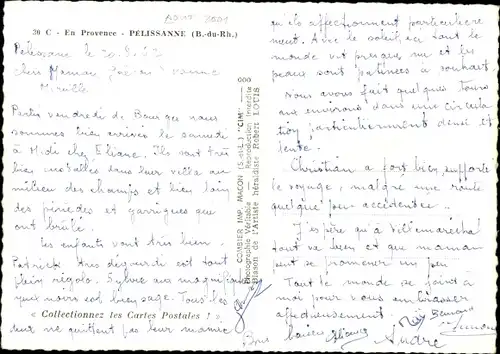 AOUT 2001
20 C - En Provence - PÉLISSANNE (B.-du-Rh.)
Pélissane le
chère Maman,
Mireille
Partis vendredi de Bourges nous
sommes bien arrivés le samedi
à Midi chez Eliane. Ils sont très
bien installés dans leur villa au
milieu des champs et bien loin
des pinèdes et garrigues qui
ont brûlé.
Les enfants vont très bien.
Patrick très dégourdi est tout
plein rigolo. Sylvie aux magnifiques
yeux noirs est bien sage. Tous les
" Collectionnez les Cartes Postales ! "
deux ne quittent pas leur mamie
000
COMBIER IMP. MACON (S.-et-L.) "CIM"
Photographie Véritable - Reproduction Interdite
Blason de l'Artiste héraldiste Robert LOUIS
qu'ils affectionnent particulière
ment. Avec le soleil ici tout le
monde vit presque nu et les
peaux sont patinées à souhait
Nous avons fait quelques tours
aux environs dans une circula
tion particulièrement dense et
lente.
Christian a fort bien supporté
le voyage malgré une route
quelque peu accidentée.
J'espère qu'à Villemaréchal
tout va bien et que maman
peut se promener un peu
Tout le monde se joint à
moi pour vous embrasser
affectueusement.
Bons baisers Eliane
André